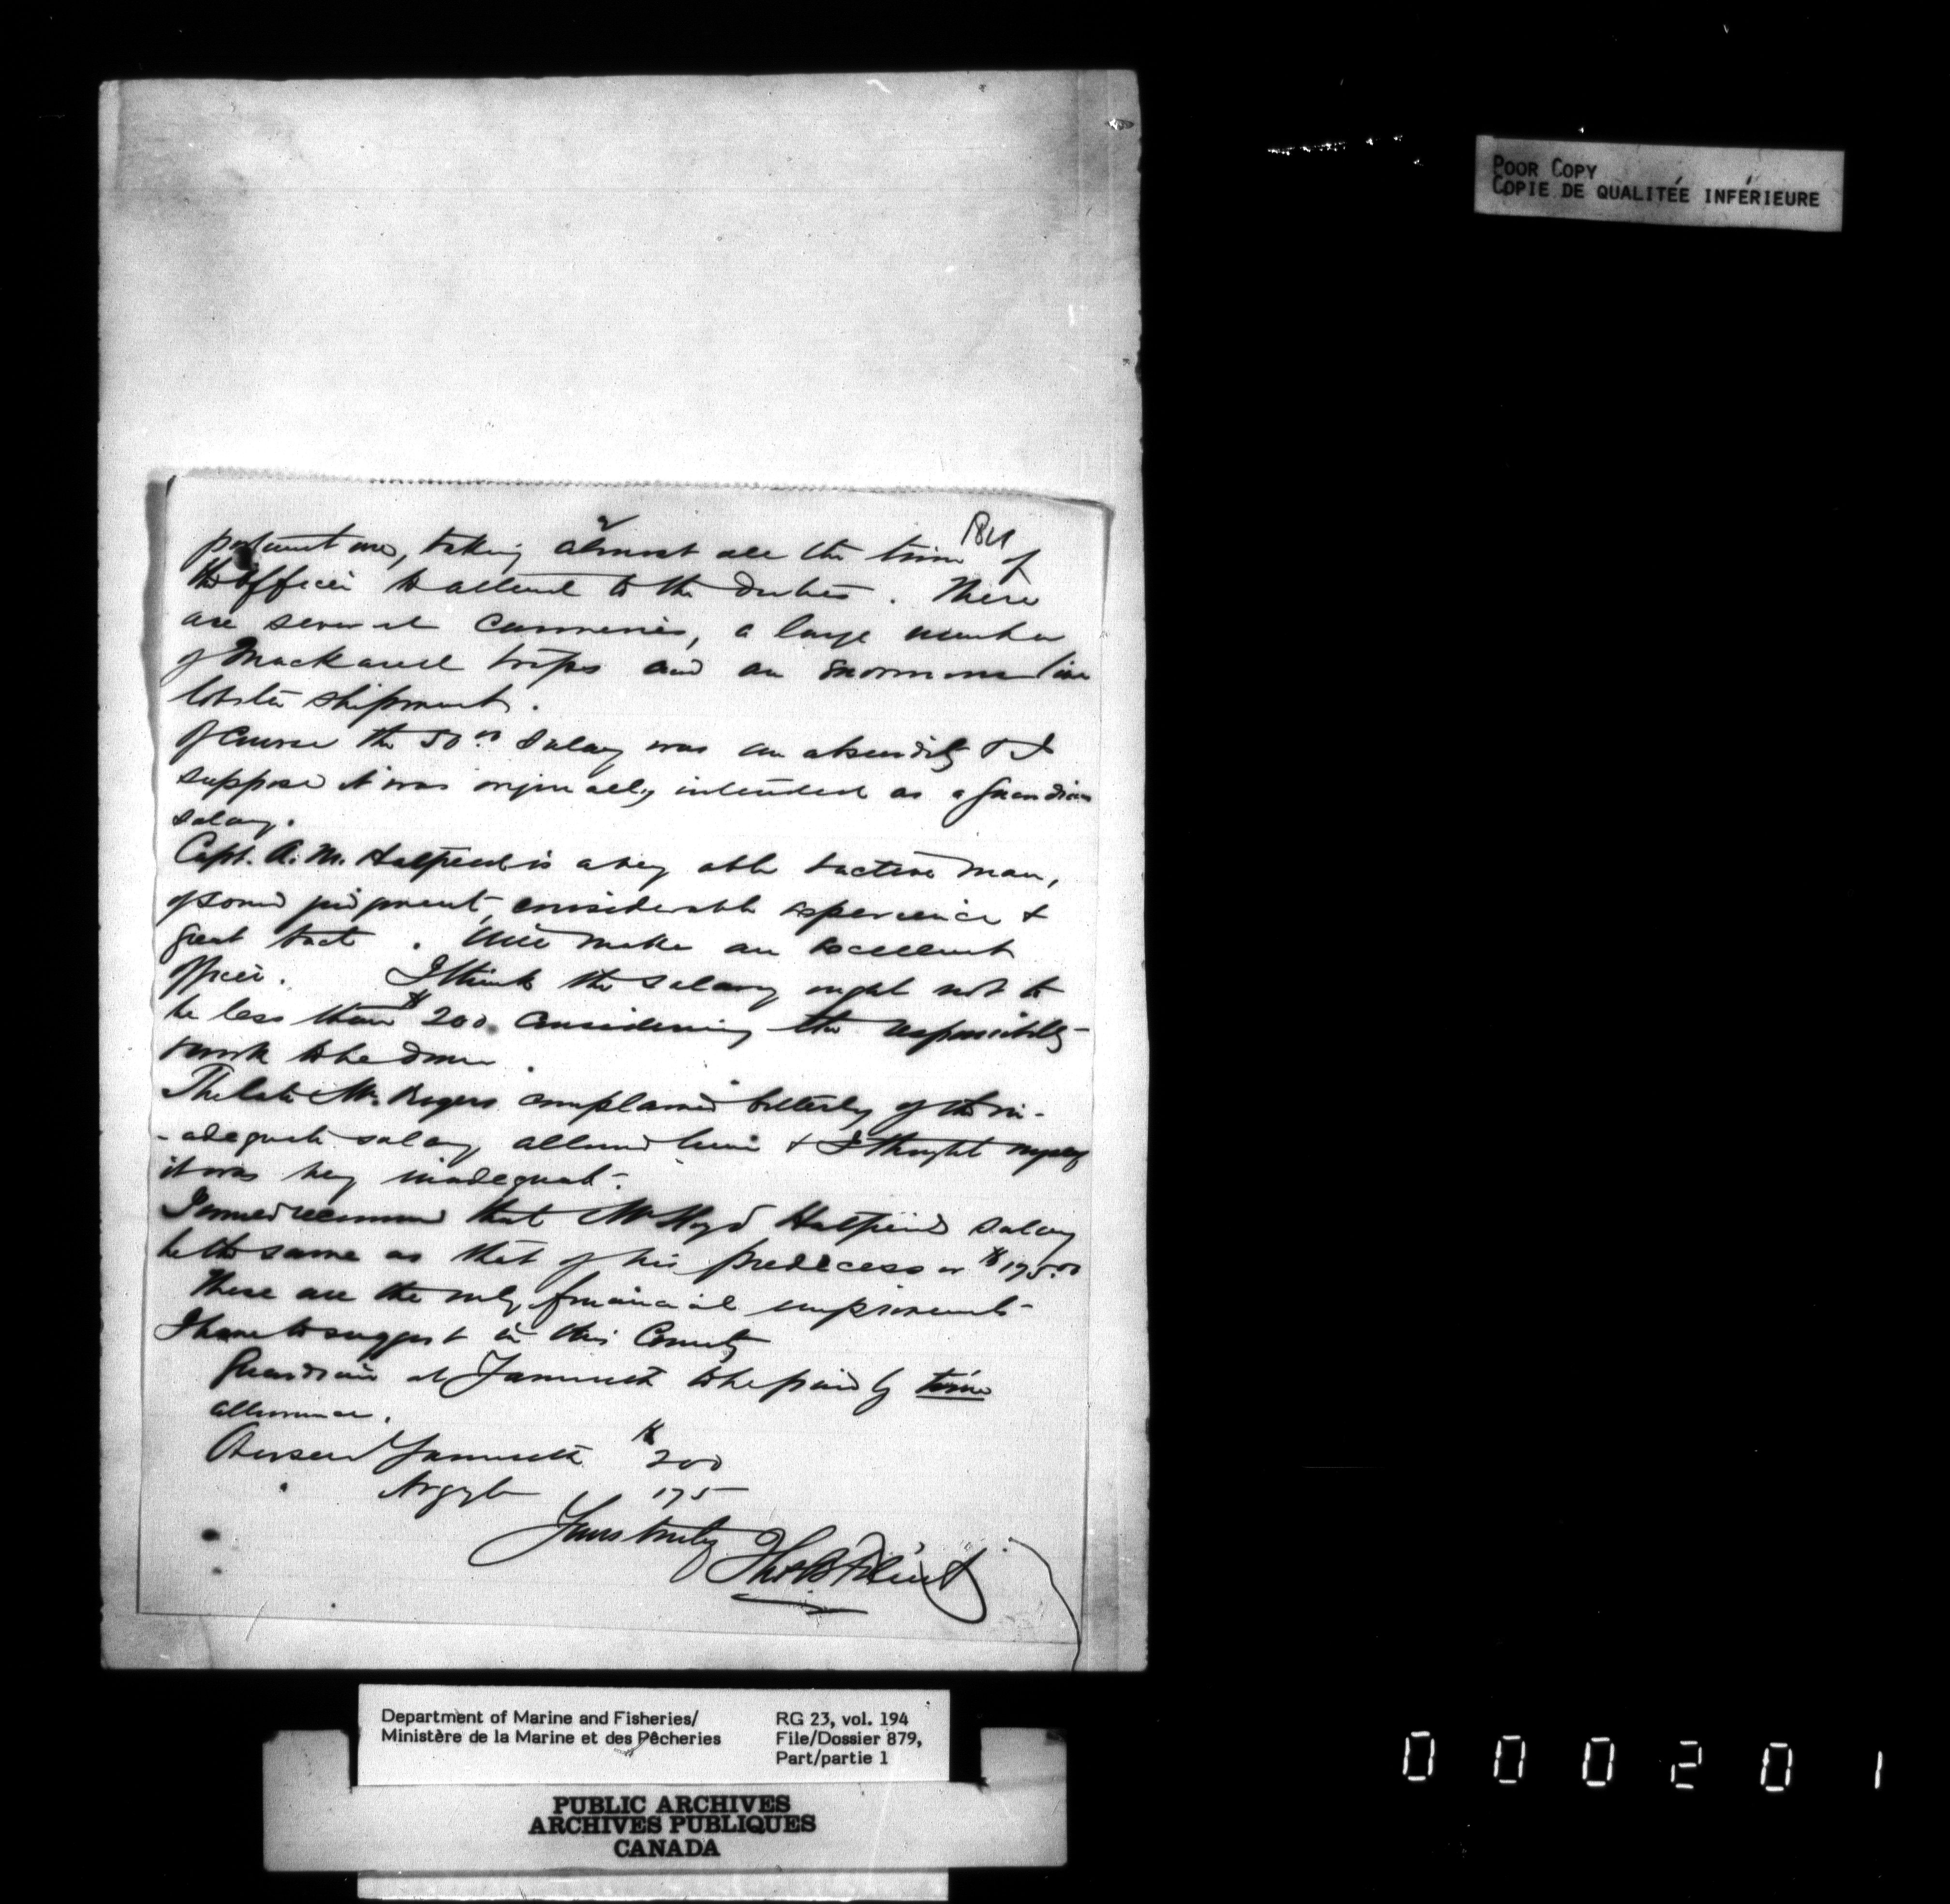 POOR COPY
COPIE DE QUALITÉE INFÉRIEURE
2
portant one, taking almost all the time of
the officer to attend to the duties. There
are several canneries, a large number
of Mackarel traps and an enormous live
lobster shipment.
Of course the 50.00 salary was an absurdity & I
suppose it was originally intended as a guardians
salary.
Capt. A. M. Hatfield is a very able & active man,
of sound judgment, considerable experience &
great tact. Will make an excellent
officer. I think the salary ought not to
be less than $200 considering the responsibility
& work to be done.
The late Mr. Rogers complained bitterly of the in-
-adequate salary allowed him & I thought myself
it was very inadequate.
I would recommend that Mr Lloyd Hatfields salary
be the same as that of his predecessor $175.00
These are the only financial improvements
I have to suggest in this County
Guardian at Yarmouth to be paid by time
allowance.
Overseer Yarmouth $200
Argyle 175
Yours truly
Thos B Flint
Department of Marine and Fisheries/
Ministère de la Marine et des Pêcheries
RG 23, vol. 194
File/Dossier 879,
Part/partie 1
PUBLIC ARCHIVES
ARCHIVES PUBLIQUES
CANADA
000201